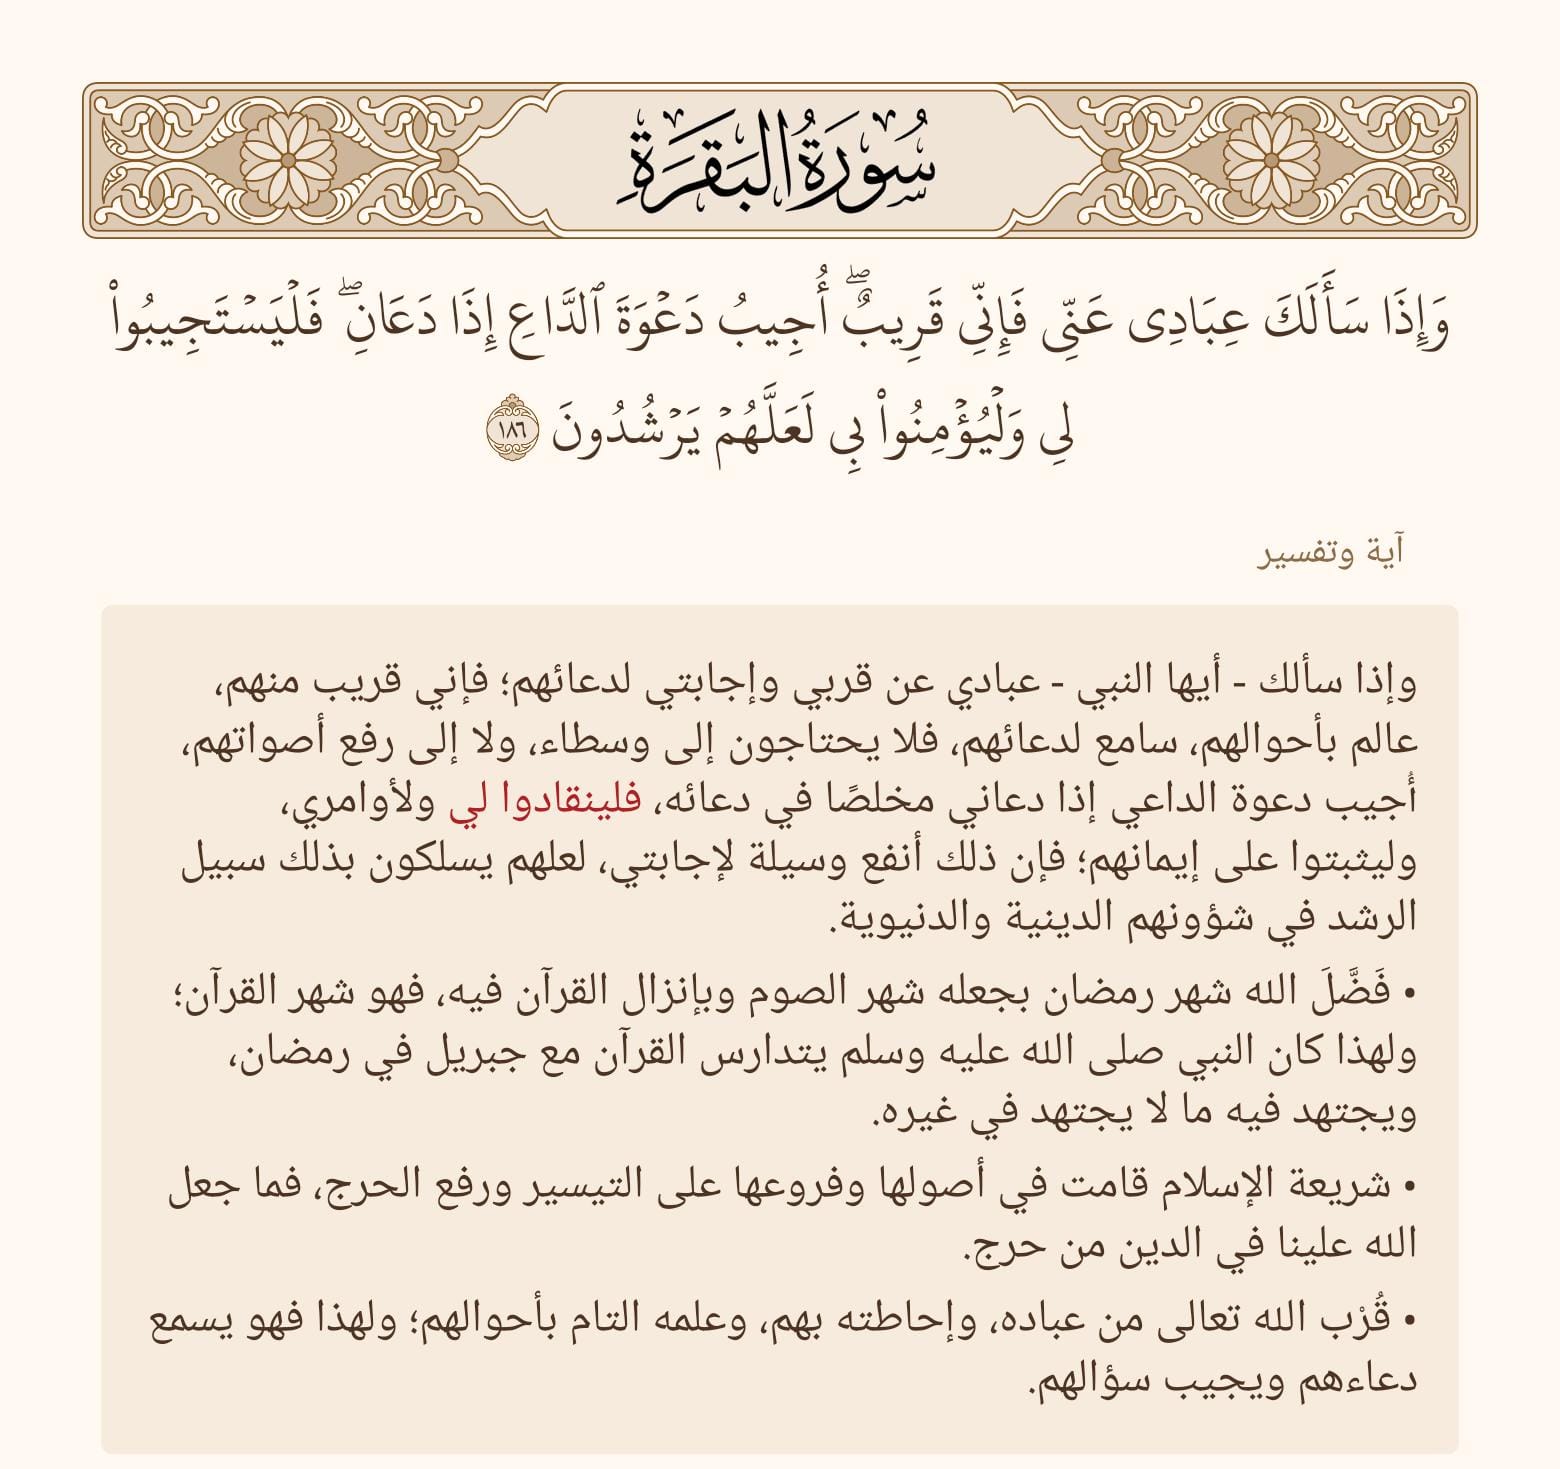 سُورَةُ البَقَرَةِ
وَإِذَا سَأَلَكَ عِبَادِى عَنِّى فَإِنِّى قَرِيبٌۖ أُجِيبُ دَعْوَةَ ٱلدَّاعِ إِذَا دَعَانِۖ فَلْيَسْتَجِيبُوا۟
لِى وَلْيُؤْمِنُوا۟ بِى لَعَلَّهُمْ يَرْشُدُونَ ١٨٦
آية وتفسير
وإذا سألك - أيها النبي - عبادي عن قربي وإجابتي لدعائهم؛ فإني قريب منهم،
عالم بأحوالهم، سامع لدعائهم، فلا يحتاجون إلى وسطاء، ولا إلى رفع أصواتهم،
أُجيب دعوة الداعي إذا دعاني مخلصًا في دعائه، فلينقادوا لي ولأوامري،
وليثبتوا على إيمانهم؛ فإن ذلك أنفع وسيلة لإجابتي، لعلهم يسلكون بذلك سبيل
الرشد في شؤونهم الدينية والدنيوية.
• فَضَّلَ الله شهر رمضان بجعله شهر الصوم وبإنزال القرآن فيه، فهو شهر القرآن؛
ولهذا كان النبي صلى الله عليه وسلم يتدارس القرآن مع جبريل في رمضان،
ويجتهد فيه ما لا يجتهد في غيره.
• شريعة الإسلام قامت في أصولها وفروعها على التيسير ورفع الحرج، فما جعل
الله علينا في الدين من حرج.
• قُرْب الله تعالى من عباده، وإحاطته بهم، وعلمه التام بأحوالهم؛ ولهذا فهو يسمع
دعاءهم ويجيب سؤالهم.